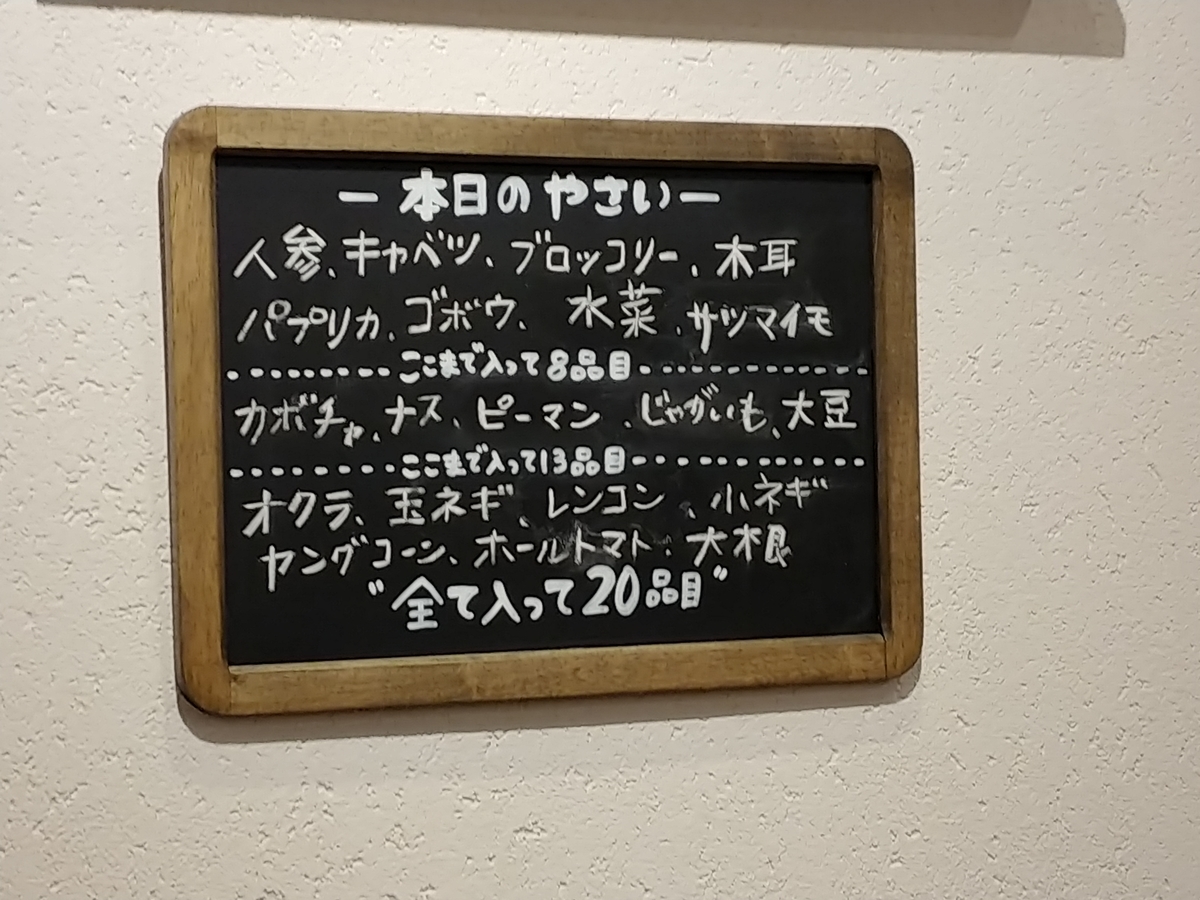 ー本日のやさいー
人参、キャベツ、ブロッコリー、木耳
パプリカ、ゴボウ、水菜、サツマイモ
ここまで入って8品目
カボチャ、ナス、ピーマン、じゃがいも、大豆
ここまで入って13品目
オクラ、玉ネギ、レンコン、小ネギ
ヤングコーン、ホールトマト、大根
"全て入って20品目"